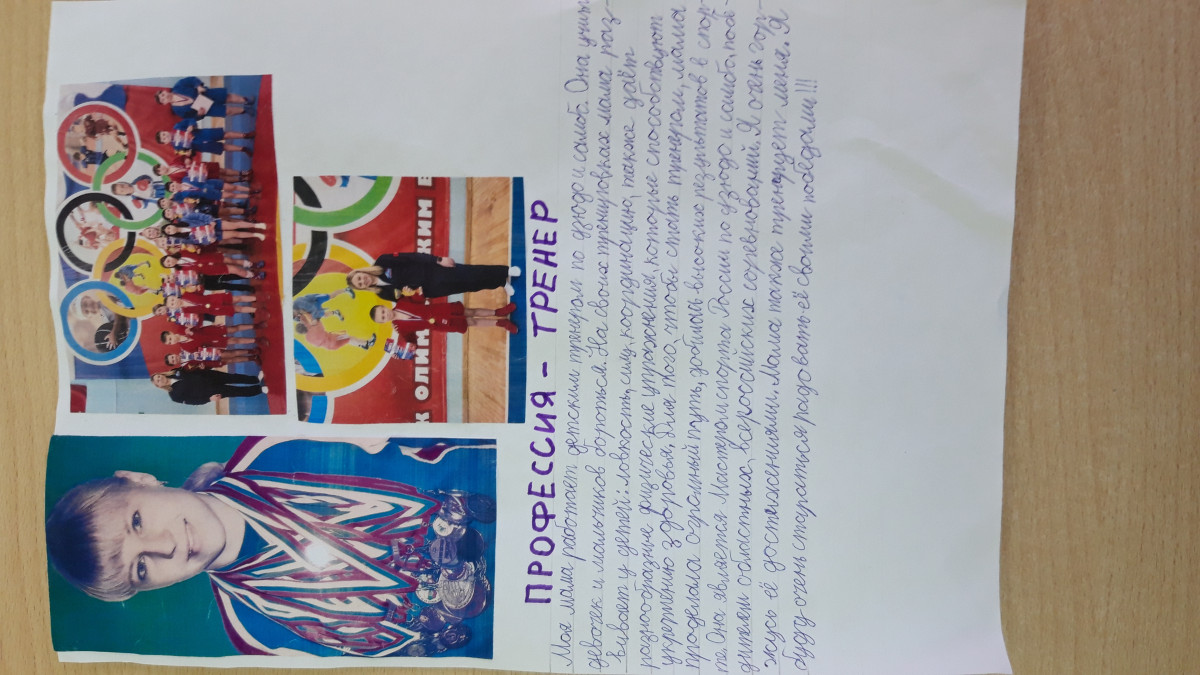 К ОЛИМ
КИМ В
ПРОФЕССИЯ - ТРЕНЕР
Моя мама работает детским тренером по дзюдо и самбо. Она учит
девочек и мальчиков бороться. На своих тренировках мама раз-
вивает у детей: ловкость, силу, координацию, также даёт
разнообразные физические упражнения, которые способствуют
укреплению здоровья. Для того, чтобы стать тренером, мама
проделала огромный путь, добилась высоких результатов в спор-
те. Она является Мастером спорта России по дзюдо и самбо, побе-
дителем областных, всероссийских соревнований. Я очень гор-
жусь её достижениями. Мама также тренирует меня. Я
буду очень стараться радовать её своими победами!!!